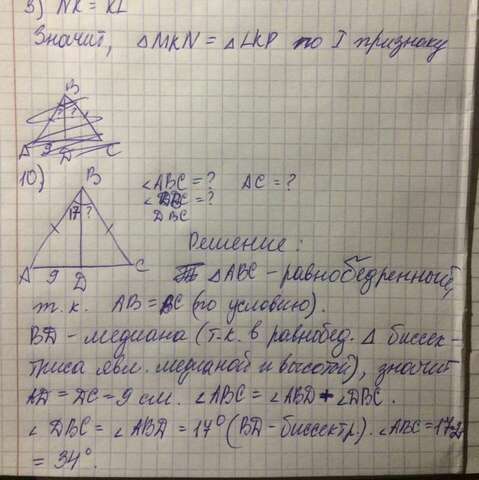 3) NK = KL
Значит, △MKN = △LKP по I признаку
B
? ?
A 9 D C
10)
B
17 ?
A 9 D C
∠ABC = ? AC = ?
∠DBC = ?
DBC
Решение:
△ABC - равнобедренный,
т.к. AB = BC (по условию).
BD - медиана (т.к. в равнобед. △ биссек-
триса явл. медианой и высотой), значит
AD = DC = 9 см. ∠ABC = ∠ABD + ∠DBC.
∠DBC = ∠ABD = 17° (BD - биссектр). ∠ABC = 17·2
= 34°.